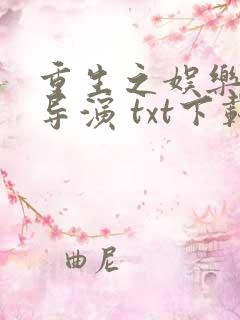 重生之娱樂
导演 txt下載
曲尼